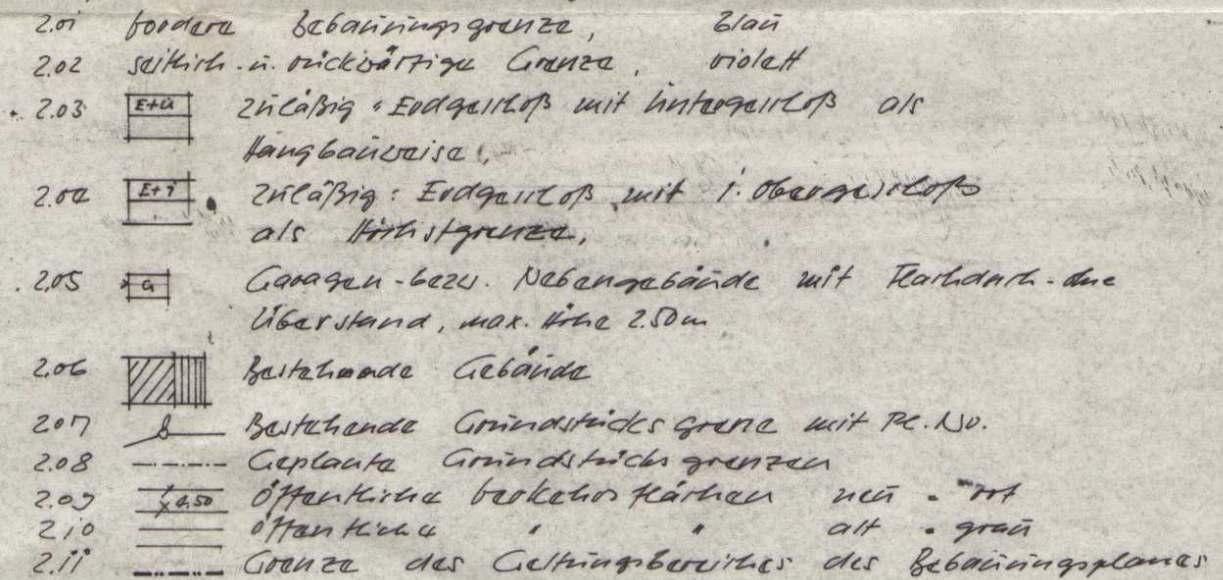 2.01 vordere Bebauungsgrenze, blau
2.02 seitlich- u. rückwärtige Grenze, violett
2.03 E+U zuläßig: Erdgeschoß mit Untergeschoß als
Hangbauweise,
2.04 E+1 zuläßig: Erdgeschoß mit 1. Obergeschoß
als Höchstgrenze,
2.05 G Garagen- bezw. Nebengebäude mit Flachdach- ohne
Überstand, max. Höhe 2.50m
2.06 Bestehende Gebäude
2.07 Bestehende Grundstücksgrenze mit Pl. No.
2.08 Geplante Grundstücksgrenzen
2.09 4.50 Öffentliche Verkehrsflächen neu - rot
2.10 Öffentliche " " alt - grau
2.11 Grenze des Geltungsbereiches des Bebauungsplanes